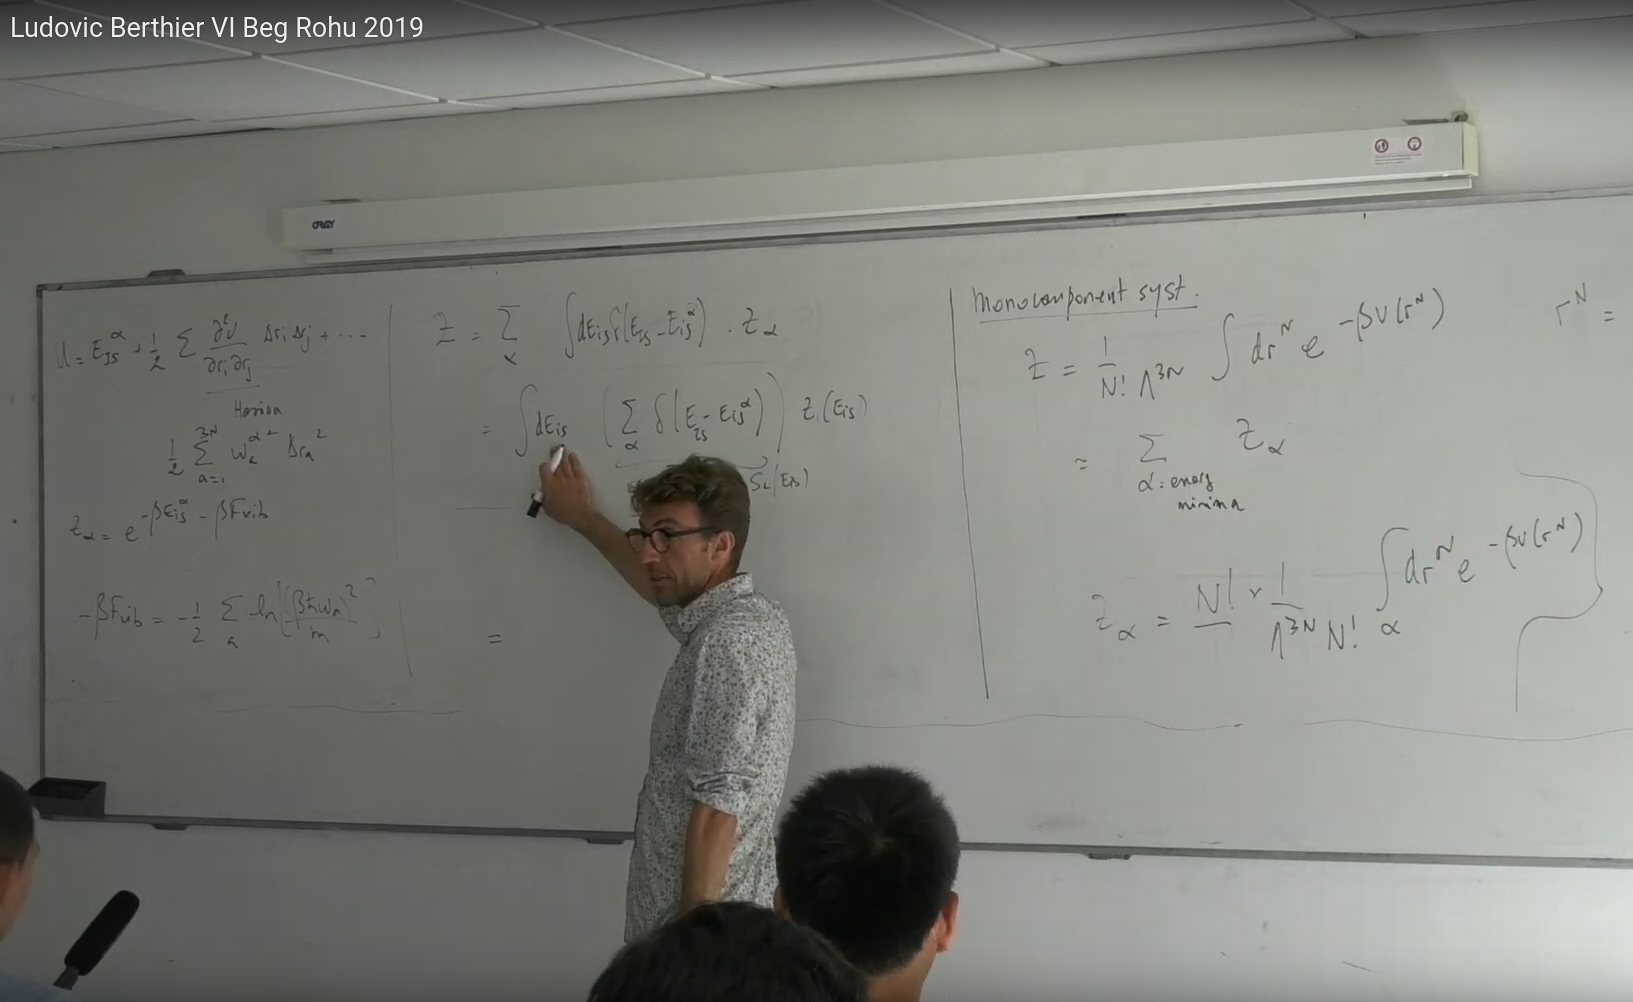 Ludovic Berthier VI Beg Rohu 2019
ORAY
U = E_IS^α + 1/2 Σ ∂²U/∂ri∂rj Δri Δrj + ...
1/2 Σ_{a=1}^{3N} ω_a^α² Δr_a²
Z_α = e^{-βE_IS^α - βFvib}
-βFvib = -1/2 Σ_a ln[(βħω_a)²/m]
Z = Σ_α ∫dE_IS δ(E_IS - E_IS^α) . Z_α
= ∫dE_IS (Σ_α δ(E_IS - E_IS^α)) Z.(E_IS)
(E_IS)
=
Monocomponent syst.
Z = 1/(N! Λ^{3N}) ∫ dr^N e^{-βU(r^N)}
= Σ Z_α
α: energy
minima
Z_α = N! × 1/(Λ^{3N} N!) ∫_α dr^N e^{-βU(r^N)}
r^N =